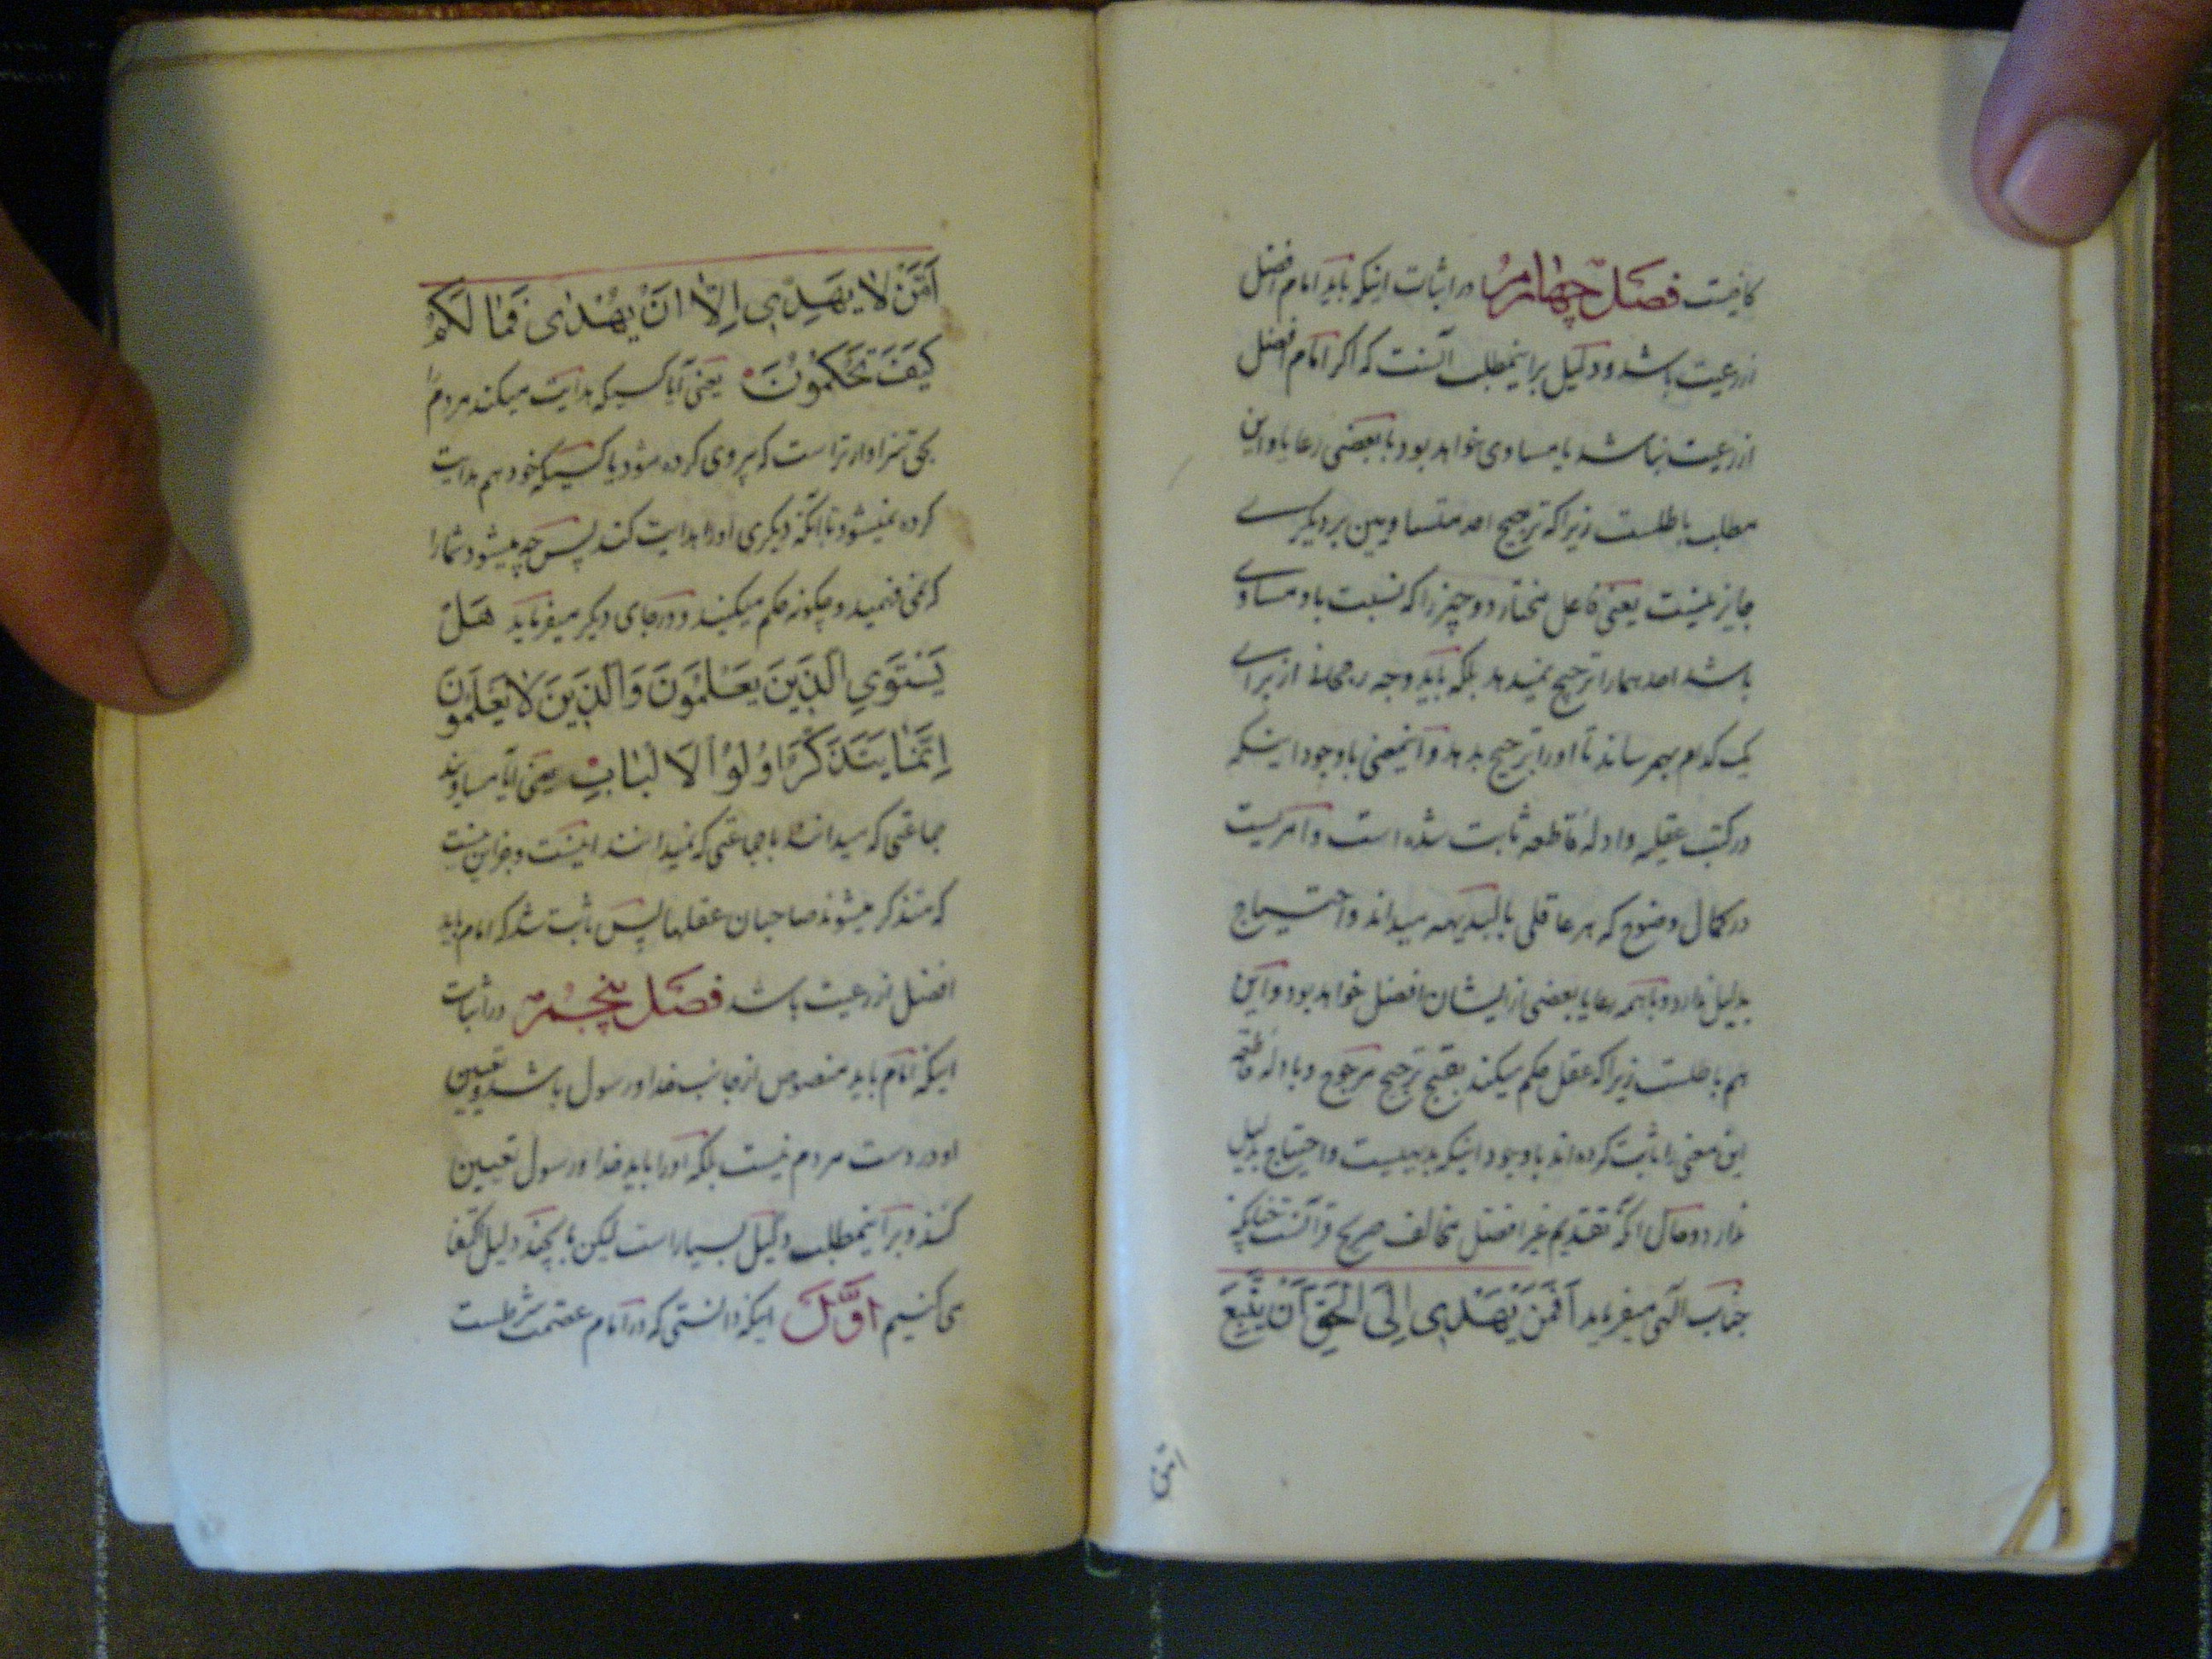 کافیست فصل چهارم در اثبات اینکه باید امام افضل
از رعیت باشد و دلیل بر اینمطلب آنست که اگر امام افضل
از رعیت نباشد یا مساوی خواهد بود با بعضی رعایا و این
مطلب باطلست زیرا که ترجیح احد متساویین بر دیگری
جایز نیست یعنی فاعل مختار دو چیز را که نسبت باو مساوی
باشد احدهما را ترجیح نمیدهد بلکه باید وجه رجحانی از برای
یک کدام بهم رساند تا او را ترجیح بدهد و اینمعنی با وجود اینکه
در کتب عقلیه و ادله قاطعه ثابت شده است و امریست
در کمال وضوح که هر عاقلی بالبدیهه میداند و احتیاج
بدلیل ندارد و با همه رعایا بعضی از ایشان افضل خواهد بود و این
هم باطلست زیرا که عقل حکم میکند بقبح ترجیح مرجوح و بادله قاطعه
این معنی را ثابت کرده اند با وجود اینکه بدیهیست و احتیاج بدلیل
ندارد و حال آنکه تقدیم غیر افضل مخالف صریح قرآنست چنانچه
جناب الهی میفرماید اَفَمَنْ یَهْدِی اِلَی الْحَقِّ اَنْ یُتَّبَعَ
اَمَّنْ
اَمَّنْ لا یَهِدِّی اِلّا اَنْ یُهْدی فَما لَکُمْ
کَیْفَ تَحْکُمُونَ یعنی آیا کسیکه هدایت میکند مردم را
بحق سزاوارتر است که پیروی کرده شود یا کسیکه خود هم هدایت
کرده نمیشود تا آنکه دیگری او را هدایت کند پس چه میشود شما را
که نمی فهمید و چگونه حکم میکنید و در جای دیگر میفرماید هَلْ
یَسْتَوِی الَّذِینَ یَعْلَمُونَ وَالَّذِینَ لا یَعْلَمُونَ
اِنَّما یَتَذَکَّرُ اوُلُوا الاَلْبابِ یعنی آیا مساویند
جماعتی که میدانند با جماعتی که نمیدانند اینست و جز این نیست
که متذکر میشوند صاحبان عقلها پس ثابت شد که امام باید
افضل از رعیت باشد فصل پنجم در اثبات
اینکه امام باید منصوص از جانب خدا و رسول باشد و تعیین
او در دست مردم نیست بلکه او را باید خدا و رسول تعیین
کنند و بر اینمطلب دلیل بسیار است لیکن با چند دلیل اکتفا
می کنیم اوّل اینکه دانستی که در امام عصمت شرطست